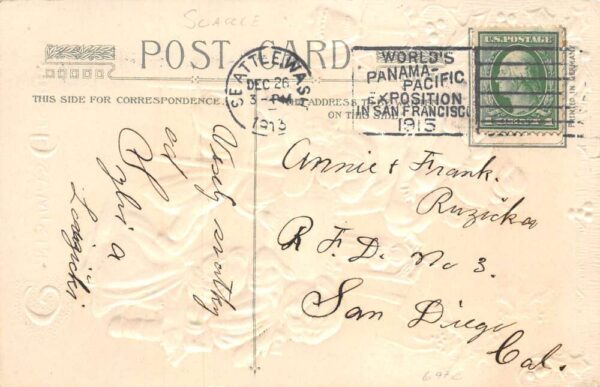 SCARCE
POST CARD
THIS SIDE FOR CORRESPONDENCE.
ADDRESS
ON THIS
SEATTLE, WASH.
DEC 26
3-PM
1913
WORLD'S
PANAMA-
PACIFIC
EXPOSITION
IN SAN FRANCISCO
1915
U.S. POSTAGE
Veselý svatky
od
Annie & Frank.
Ruzicka
R.F.D. No 3.
San Diego
Cal.